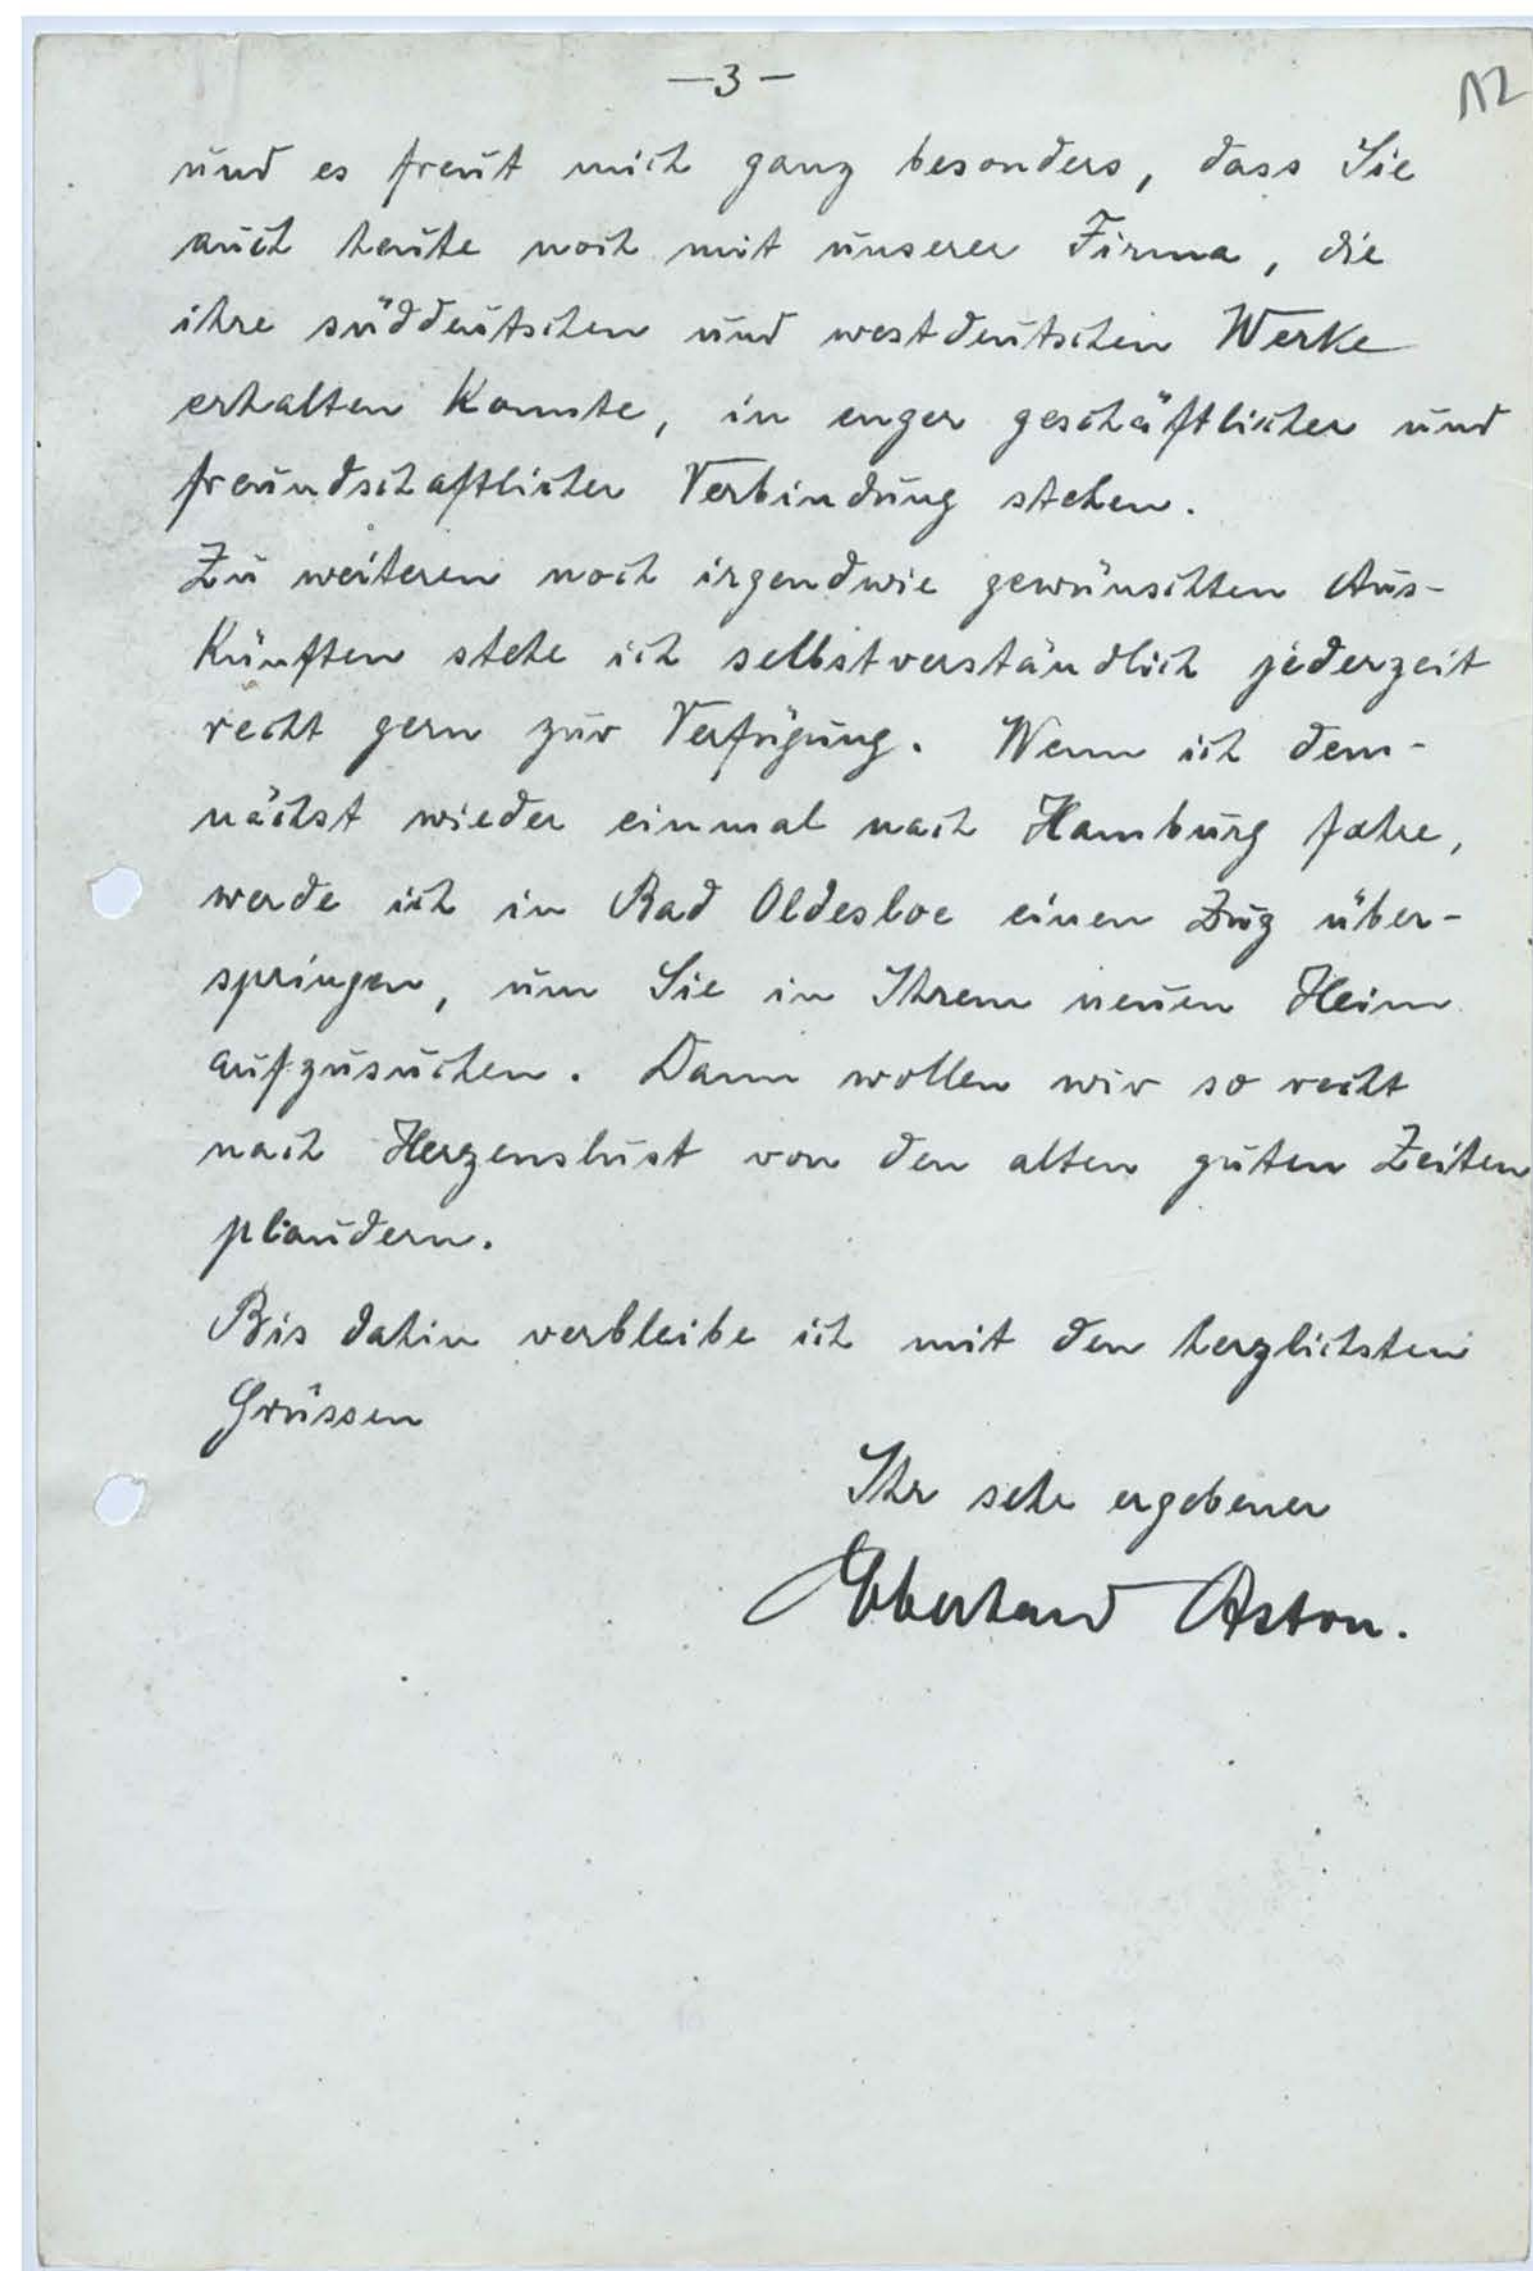 —3—
12
und es freut mich ganz besonders, dass Sie
auch heute noch mit unserer Firma, die
ihre süddeutschen und westdeutschen Werke
erhalten konnte, in enger geschäftlicher und
freundschaftlicher Verbindung stehen.
Zu weiteren noch irgendwie gewünschten Aus-
künften stehe ich selbstverständlich jederzeit
recht gern zur Verfügung. Wenn ich dem-
nächst wieder einmal nach Hamburg fahre,
werde ich in Bad Oldesloe einen Zug über-
springen, um Sie in Ihrem neuen Heim
aufzusuchen. Dann wollen wir so recht
nach Herzenslust von den alten guten Zeiten
plaudern.
Bis dahin verbleibe ich mit den herzlichsten
Grüssen
Ihr sehr ergebener
Eberhard Aston.